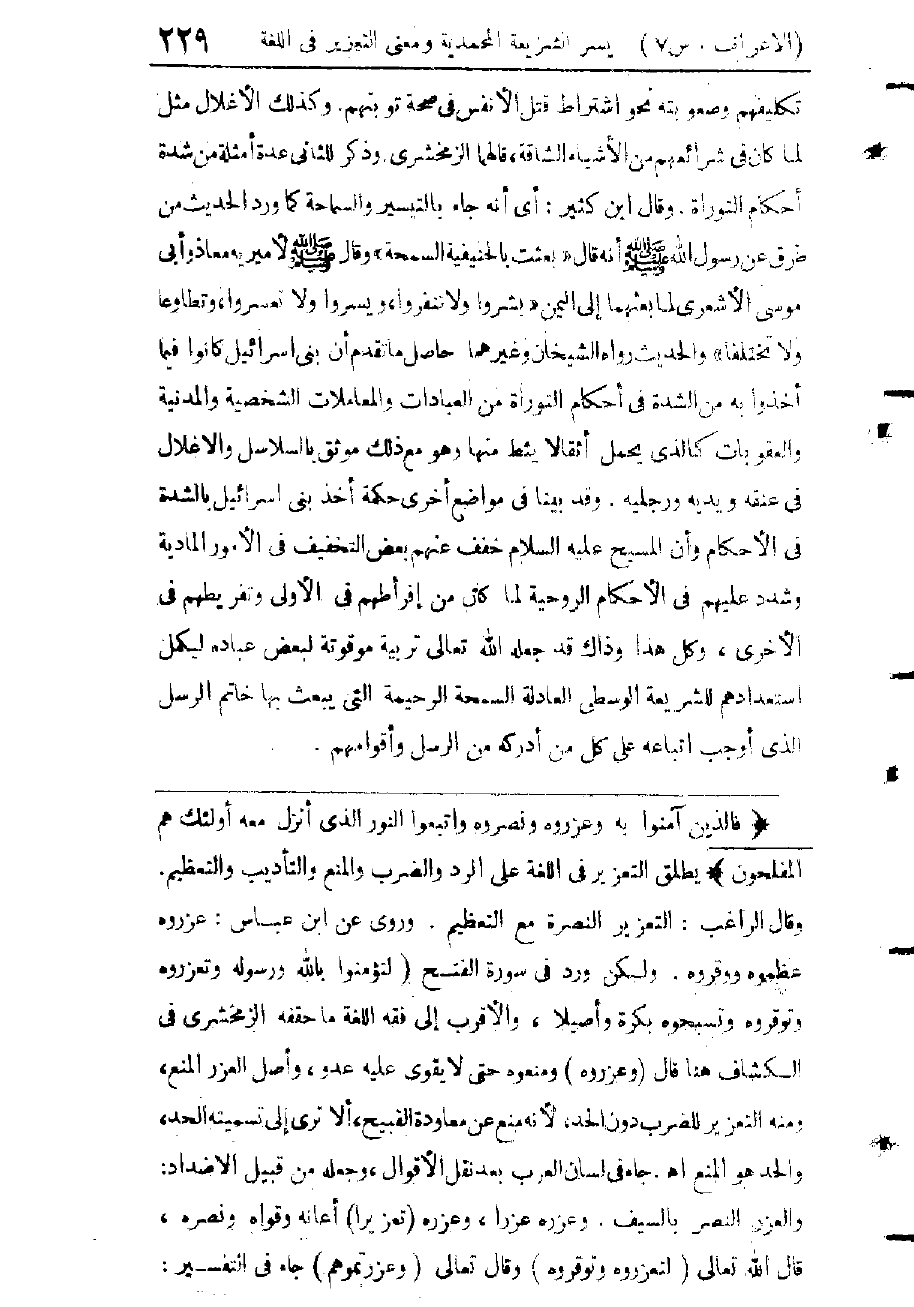 (الاعراف . س٧) يسر الشريعة المحمدية ومعنى التعزير فى اللغة ٢٢٩
تكليفهم وصعوبته نحو اشتراط قتل الأنفس فى صحة توبتهم. وكذلك الأغلال مثل
لما كان فى شرائعهم من الأشياء الشاقة، قالها الزمخشرى. وذكر للثانى عدة أمثلة من شدة
أحكام التوراة. وقال ابن كثير : أى أنه جاء بالتيسير والسماحة كما ورد الحديث من
طرق عن رسول الله ﷺ أنه قال « بعثت بالحنيفية السمحة» وقال ﷺ لأميريه معاذ وأبى
موسى الأشعرى لما بعثهما إلى اليمن « بشروا ولا تنفروا، ويسروا ولا تعسروا، وتطاوعا
ولا تختلفا» والحديث رواه الشيخان وغيرهما حاصل ما تقدم أن بنى اسرائيل كانوا فيما
أخذوا به من الشدة فى أحكام التوراة من العبادات والمعاملات الشخصية والمدنية
والعقوبات كالذى يحمل أثقالا يئط منها وهو مع ذلك موثق بالسلاسل والاغلال
فى عنقه ويديه ورجليه . وقد بينا فى مواضع أخرى حكمة أخذ بنى اسرائيل بالشدة
فى الأحكام وأن المسيح عليه السلام خفف عنهم بعض التخفيف فى الأمور المادية
وشدد عليهم فى الأحكام الروحية لما كان من إفراطهم فى الأولى وتفريطهم فى
الأخرى ، وكل هذا وذاك قد جعله الله تعالى تربية موقوتة لبعض عباده ليكمل
استعدادهم للشريعة الوسطى العادلة السمحة الرحيمة التى يبعث بها خاتم الرسل
الذى أوجب اتباعه على كل من أدركه من الرسل وأقوامهم .
﴿ فالذين آمنوا به وعزروه ونصروه واتبعوا النور الذى أنزل معه أولئك هم
المفلحون ﴾ يطلق التعزير فى اللغة على الرد والضرب والمنع والتأديب والتعظيم.
وقال الراغب : التعزير النصرة مع التعظيم . وروى عن ابن عباس : عزروه
عظموه ووقروه . ولكن ورد فى سورة الفتح ( لتؤمنوا بالله ورسوله وتعزروه
وتوقروه وتسبحوه بكرة وأصيلا ، والأقرب إلى فقه اللغة ما حققه الزمخشرى فى
الكشاف هنا قال (وعزروه ) ومنعوه حتى لا يقوى عليه عدو ، وأصل العزر المنع،
ومنه التعزير للضرب دون الحد، لأنه منع عن معاودة القبيح، ألا ترى إلى تسميته الحد،
والحد هو المنع اه. جاء فى لسان العرب بعد نقل الأقوال ، وجعله من قبيل الاضداد:
والعزر النصر بالسيف . وعزره عزرا ، وعزره (تعزيرا) أعانه وقواه ونصره ،
قال الله تعالى ( لتعزروه وتوقروه ) وقال تعالى ( وعزرتموهم ) جاء فى التفسير :